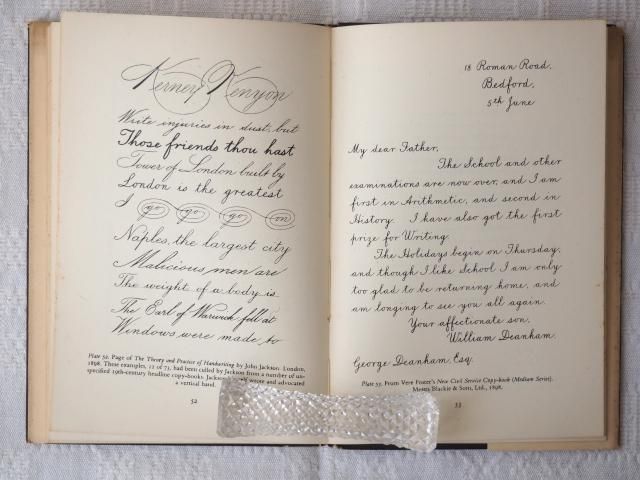 Kerney Kenyon
Write injuries in dust, but
Those friends thou hast
Tower of London built by
London is the greatest
I go go go on
Naples, the largest city
Malicious men are
The weight of a body is
The Earl of Warwick fell at
Windows were made to
Plate 52. Page of The Theory and Practice of Handwriting by John Jackson. London,
1898. These examples, 12 of 73, had been culled by Jackson from a number of un-
specified 19th-century headline copy-books. Jackson wrote and advocated
a vertical hand.
52
18 Roman Road,
Bedford,
5th June
My dear Father,
The School and other
examinations are now over, and I am
first in Arithmetic, and second in
History. I have also got the first
prize for Writing.
The Holidays begin on Thursday,
and though I like School I am only
too glad to be returning home, and
am longing to see you all again.
Your affectionate son,
William Deanham.
George Deanham, Esq.
Plate 53. From Vere Foster's New Civil Service Copy-book (Medium Series).
Messrs Blackie & Sons, Ltd., 1898.
53